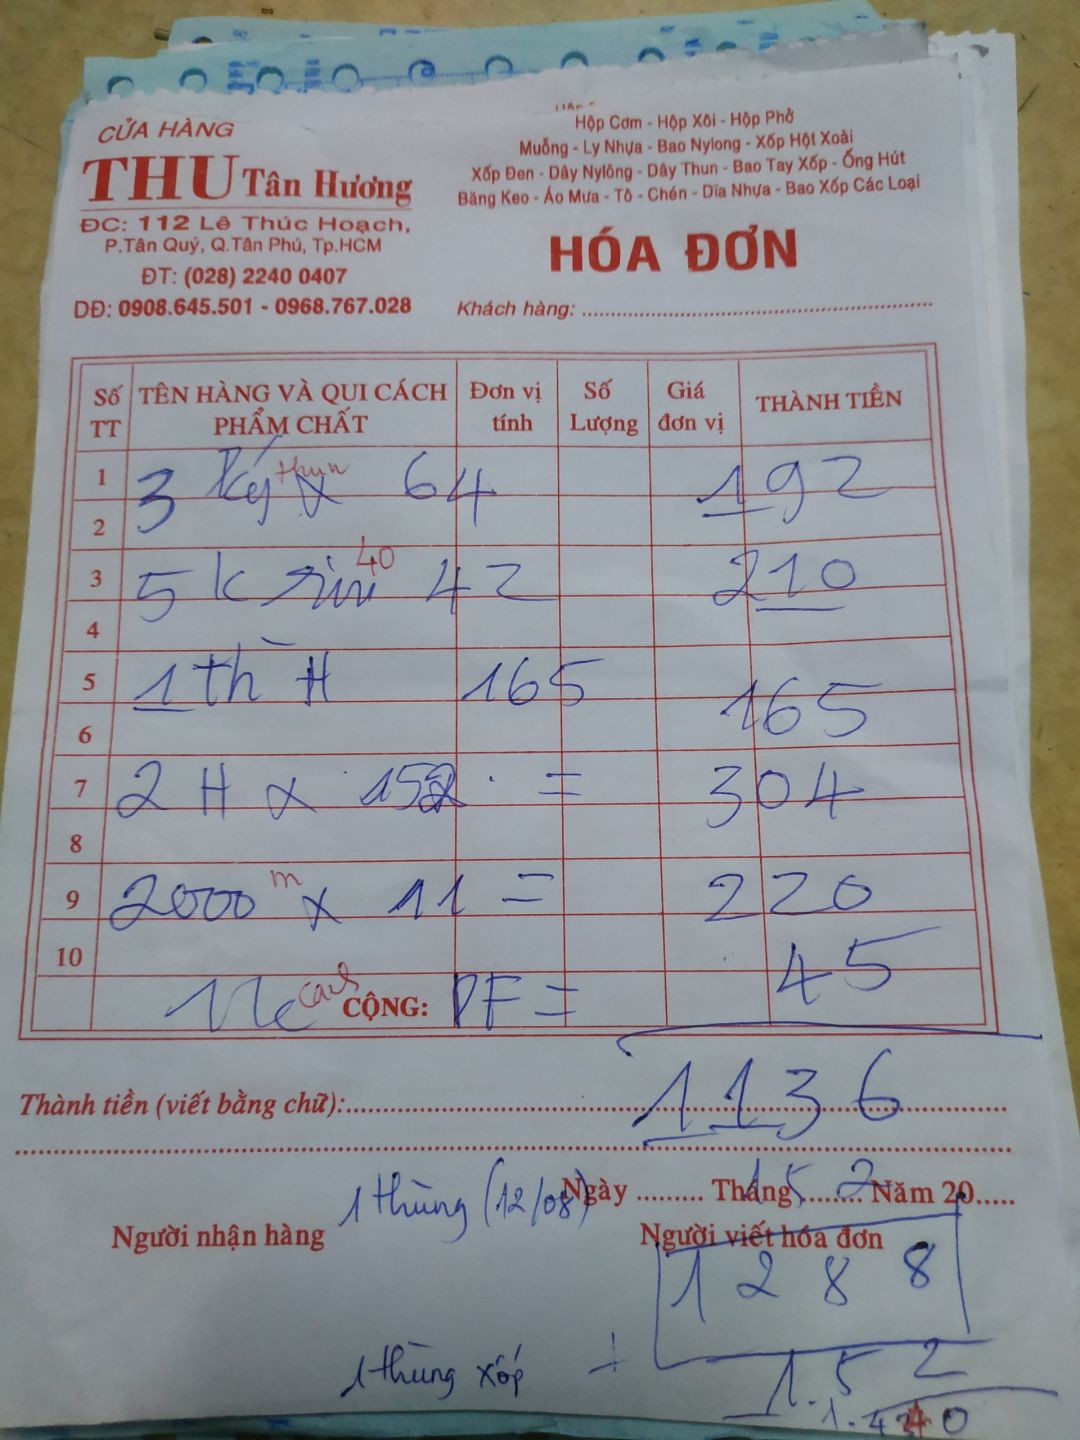 CỬA HÀNG
THU Tân Hương
ĐC: 112 Lê Thúc Hoạch,
P.Tân Quý, Q.Tân Phú, Tp.HCM
ĐT: (028) 2240 0407
DĐ: 0908.645.501 - 0968.767.028
Hộp Cơm - Hộp Xôi - Hộp Phở
Muỗng - Ly Nhựa - Bao Nylong - Xốp Hột Xoài
Xốp Đen - Dây Nylông - Dây Thun - Bao Tay Xốp - Ống Hút
Băng Keo - Áo Mưa - Tô - Chén - Dĩa Nhựa - Bao Xốp Các Loại
HÓA ĐƠN
Khách hàng:
Số TT TÊN HÀNG VÀ QUI CÁCH PHẨM CHẤT Đơn vị tính Số Lượng Giá đơn vị THÀNH TIỀN
1 3 ký thun x 64 192
2
3 5 k 40 42 210
4
5 1 th H 165 165
6
7 2 H x 152 = 304
8
9 2000 m x 11 = 220
10 45
CỘNG: PF =
1136
Thành tiền (viết bằng chữ):
Ngày ......... Tháng ......... Năm 20.....
152
1 thùng (12/08)
Người nhận hàng Người viết hóa đơn
1288
1 thùng xốp + 1.52